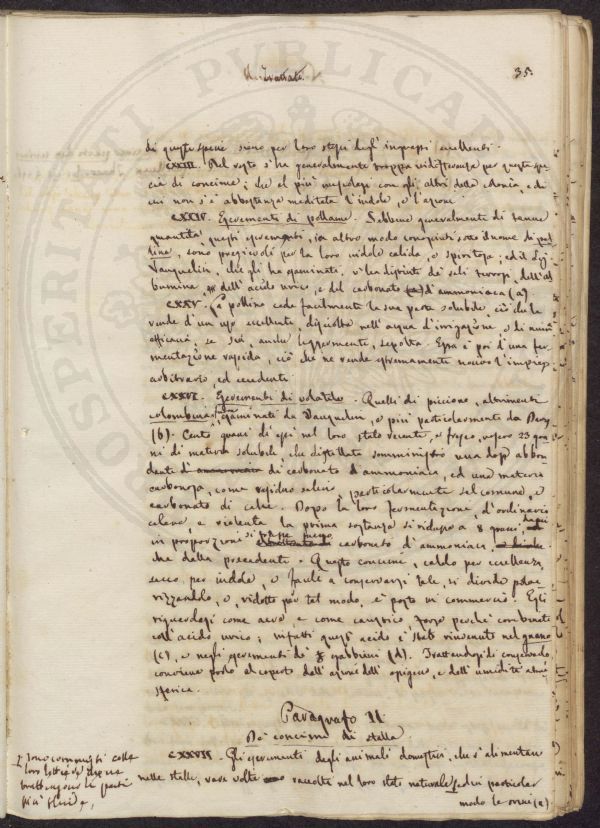 35.
di queste specie sieno per loro stessi degl'ingrassi eccellenti.
CXXIII. Nel resto s'ha generalmente troppa indifferenza per questa spe-
cie di concime; che al più mescolasi con gli altri della
cui non s'è abbastanza meditata l'indole, e l'azione.
CXXIV. Escrementi di pollame. Sebbene generalmente di tenue
quantità, questi escrementi, in altro modo conosciuti sotto il nome di pol-
lina, sono pregievoli per la loro indole calida, e spiritosa; ed il Sig.r
Vauquelin, che gli ha esaminati, v'ha distinti de' sali terrosi, dell'al-
bumina, dell'acido urico, e del carbonato d'ammoniaca (a)
CXXV. La pollina cede facilmente la sua parte solubile, ciò che la
rende d'un uso eccellente, disciolta nell'acqua d'irrigazione, e di niuna
efficacia, se sia, anche leggermente, sepolta. Essa è poi d'una fer-
mentazione rapida, ciò che ne rende estremamente nocivo l'impiego
arbitrario, ed eccedente.
CXXVI. Escrementi di volatili. Quelli di piccione, altrimenti
colombina, esaminati da Vauquelin, e più particolarmente da Davy
(b). Cento grani di essi nel loro stato recente, e fresco, resero 23 gra-
ni di materia solubile, che distillata somministrò una dose abbon-
dante di carbonato d'ammoniaca, ed una materia
carbonosa, come residuo salino, particolarmente sal comune, e
carbonato di calce. Dopo la loro fermentazione, d'ordinario
celere, e violenta la prima sostanza si ridusse a 8 grani,
in proporzione si trasse meno carbonato d'ammoniaca
che dalla precedente. Questo concime, caldo per eccellenza,
secco per indole, e facile a conservarsi tale, si divide polve-
rizzandolo, e, ridotto per tal modo, è posto in commercio. Egli
riguardasi come acre, e come caustico, forse perchè combinato
coll'acido urico; infatti quest'acido è stato rinvenuto nel guano
(c), e negli escrementi de' gabbiani (d). Trattandosi di conservarlo,
conviene porlo al coperto dell'azione dell'ossigeno, e dell'umidità atmo-
sferica.
Paragrafo II
De' concimi di stalla.
CXXVII. Gli escrementi degli animali domestici, che s'alimentano
nelle stalle, rare volte raccolti nel loro stato naturale, ed in particolar
modo le orine (a)
sono commisti colla
loro lettiera che ne
trattengono le parti
più fluide,